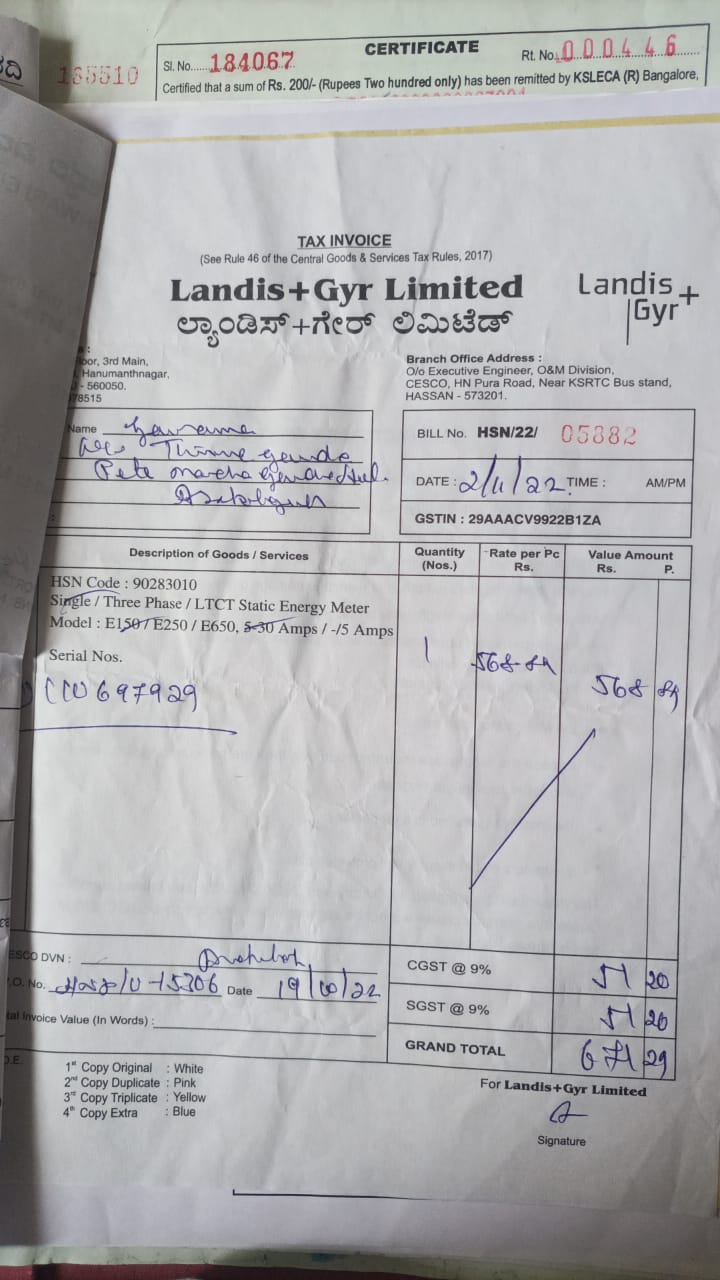 185510
Sl. No...... 184067
CERTIFICATE
Rt. No. 000446
Certified that a sum of Rs. 200/- (Rupees Two hundred only) has been remitted by KSLECA (R) Bangalore,
TAX INVOICE
(See Rule 46 of the Central Goods & Services Tax Rules, 2017)
Landis+Gyr Limited
ಲ್ಯಾಂಡಿಸ್+ಗೇರ್ ಲಿಮಿಟೆಡ್
Landis
Gyr+
3rd Main,
Hanumanthnagar,
- 560050.
78515
Branch Office Address :
O/o Executive Engineer, O&M Division,
CESCO, HN Pura Road, Near KSRTC Bus stand,
HASSAN - 573201.
Name
BILL No. HSN/22/ 05882
DATE : 2/11/22 TIME : AM/PM
GSTIN : 29AAACV9922B1ZA
Description of Goods / Services
Quantity (Nos.)
Rate per Pc Rs.
Value Amount Rs. P.
HSN Code : 90283010
Single / Three Phase / LTCT Static Energy Meter
Model : E150 / E250 / E650, 5-30 Amps / -/5 Amps
1 568-89 568 89
Serial Nos.
697929
ESCO DVN :
.O. No. 15306 Date 19/10/22
Invoice Value (In Words) :
CGST @ 9% 51 20
SGST @ 9% 51 20
GRAND TOTAL 671 29
1st Copy Original : White
2nd Copy Duplicate : Pink
3rd Copy Triplicate : Yellow
4th Copy Extra : Blue
For Landis+Gyr Limited
Signature